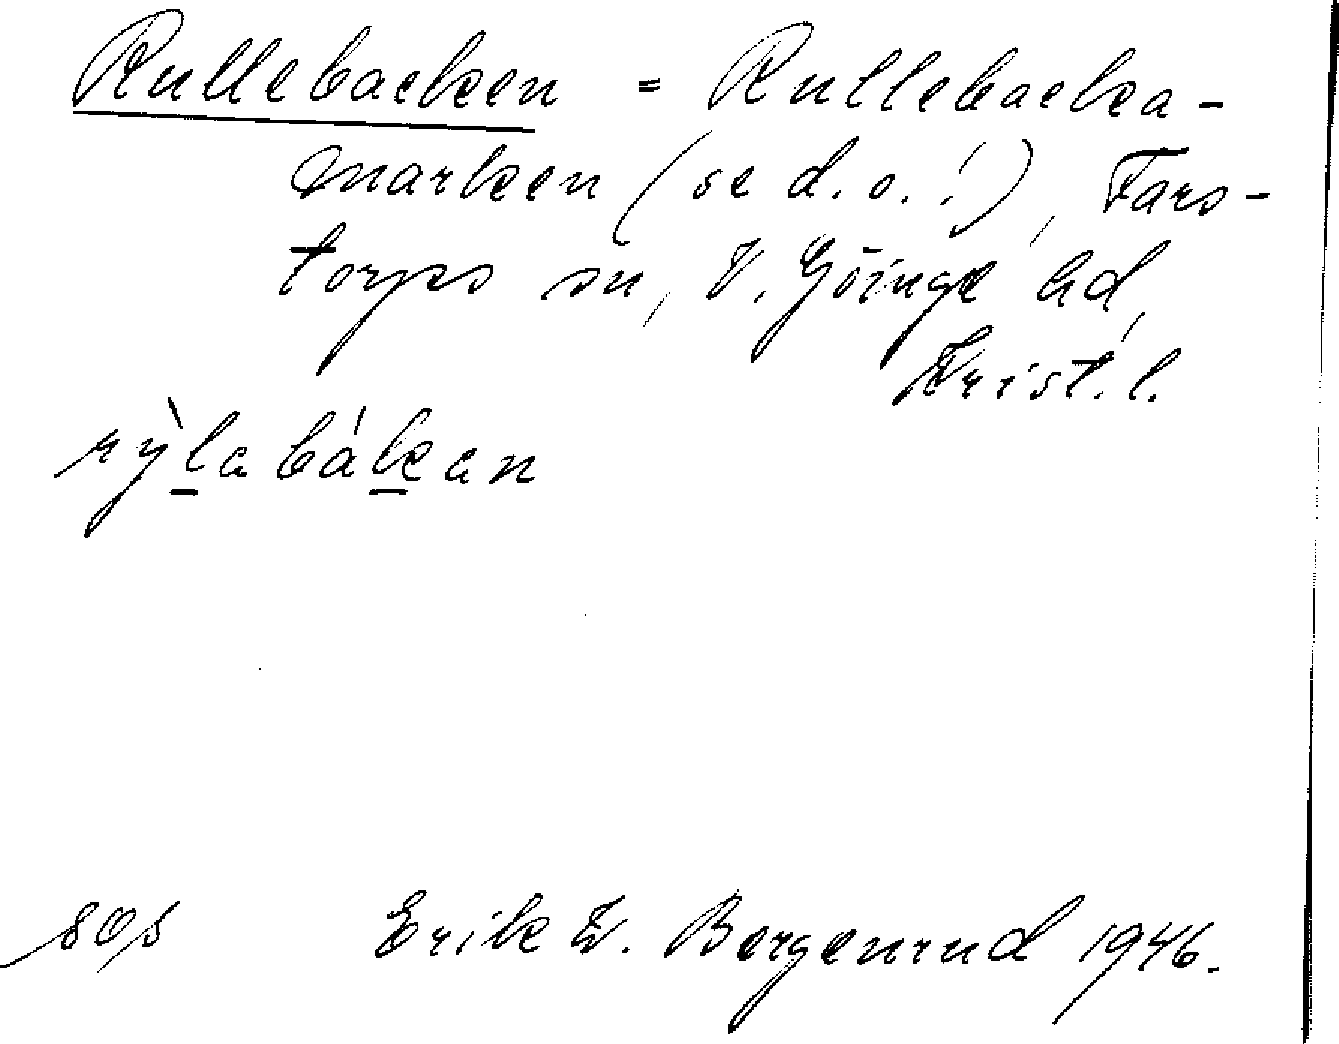 Rullebacken = Rullebacka-
marken (se d. o.!), Fars-
torps sn, V. Göinge hd,
Krist. l.
rỳlabákan
Erik W. Bergenrud 1946.